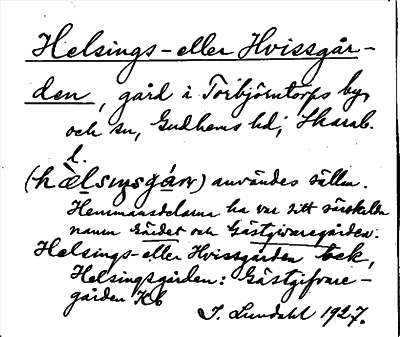 Helsings- eller Hvissgår-
den, gård i Torbjörntorps by
och sn, Gudhems hd; Skarab.
l.
(hælsıŋsgán) användes sällan.
Hemmansdelarna ha var sitt särskilda
namn Gärdet och Gästgivaregården.
Helsings- eller Hvissgården bek,
Helsingsgården: Gästgifvare-
gården Kb
I. Lundahl 1927.